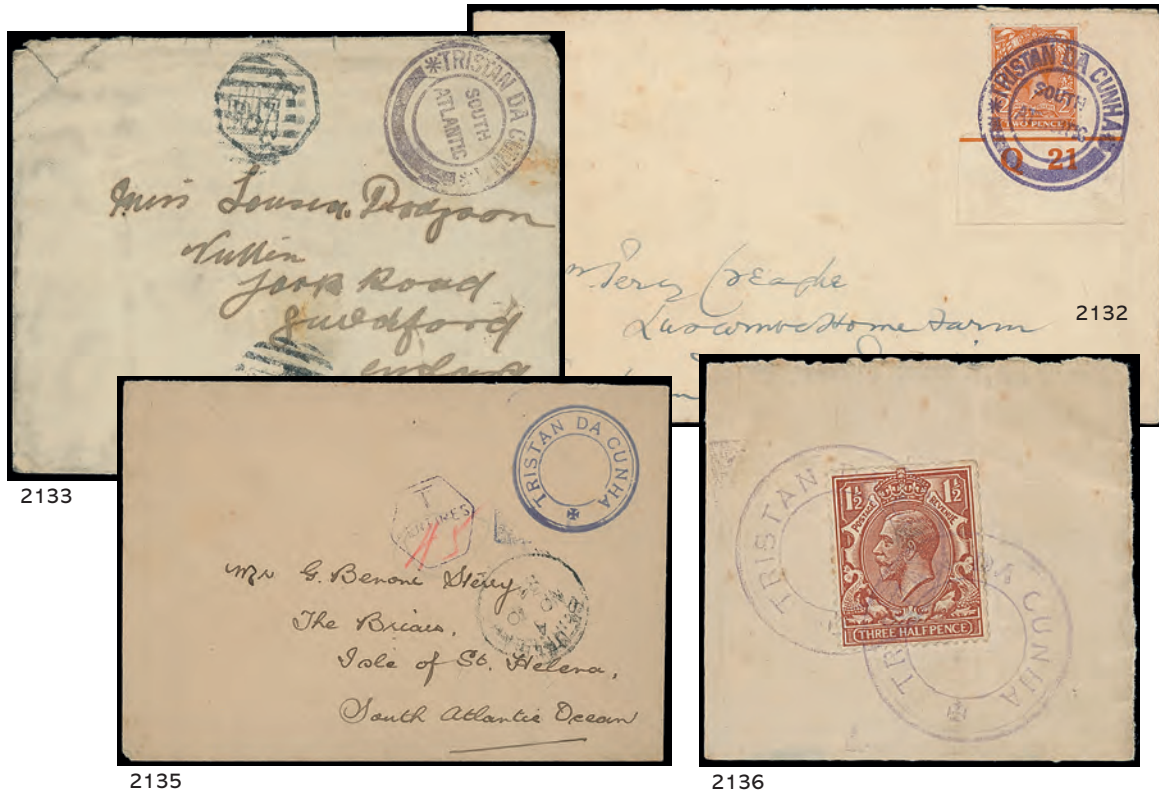 *TRISTAN DA CUNHA*
SOUTH
ATLANTIC
Miss Dodgson
York Road
Guildford
England
2133
TWO POENCE
*TRISTAN DA CUNHA*
SOUTH
ATLANTIC
Q 21
Percy
Luscombe Home Farm
2132
TRISTAN DA CUNHA
T
CENTIMES
Mr G. Benone
The Briars,
Isle of St. Helena,
South Atlantic Ocean
2135
TRISTAN
1½ 1½
POSTAGE REVENUE
THREE HALFPENCE
TRISTAN DA CUNHA
2136